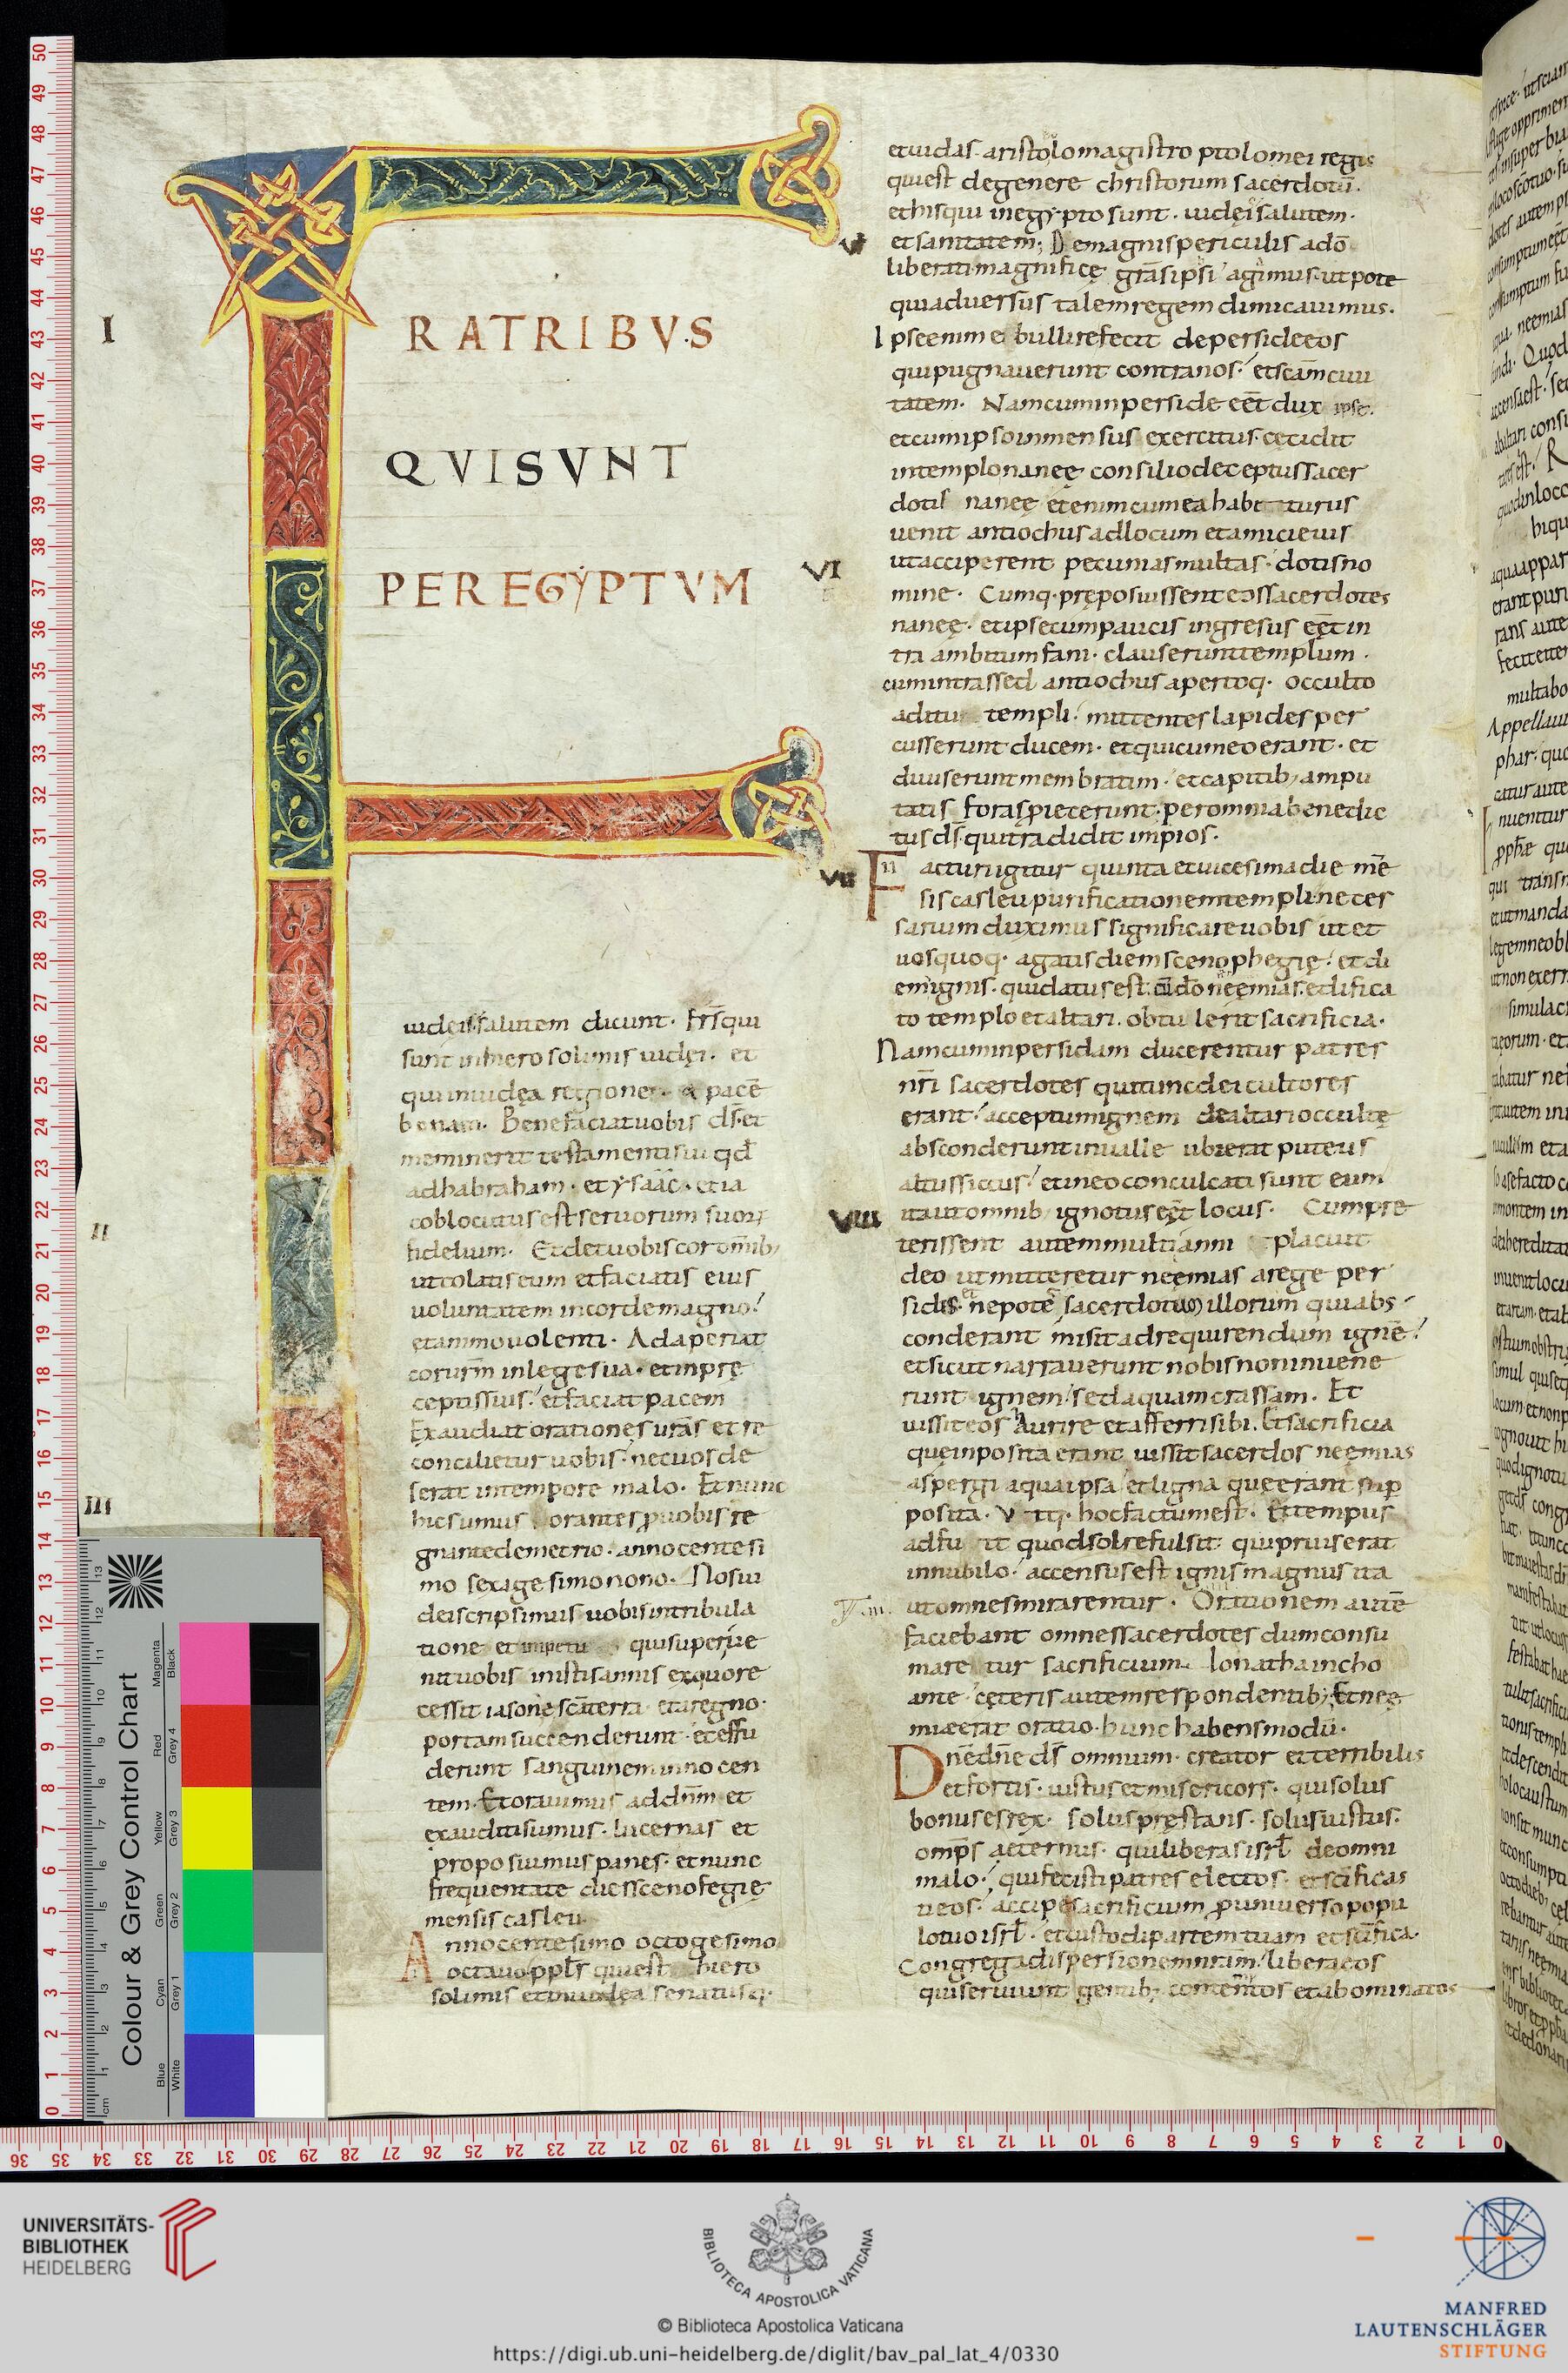 I
RATRIBVS
QVISVNT
PEREGYPTVM
iudeissalutem dicunt. Frs̄qui
sunt inhierosolimis iudei. et
quiiniudea regione. & pacē
bonam. Benefaciatuobis ds̄.et
meminerit testamentisui qd̄
adhabraham. etysaac. etia
II
coblocutusestseruorum suorum
fidelium. Etdetuobiscoromnib;
utcolatiseum etfaciatis eius
uoluntatem incordemagno.
etanimouolenti. Adaperiat
corurm̄ inlegesua. etinpre
ceptissuis. etfaciatpacem
Exaudiatorationesurās etre
concilieturuobis. necuosde
serat intempore malo. Etnunc
III
hicsumus orantesproubobis re
gnantedemetrio. annocentesi
mo sexagesimonono. Nosiu
deiscripsimus uobisintribula
tione et impetu quisuperue
nituobis inistisannis exquore
cessit iasone scāterra etaregno.
portamsuccenderunt. eteffu
derunt sanguineminnocen
tem. Etorauimus addnm̄ et
exauditisumus. lucernas et
proposuimuspanes. etnunc
frequentate diesscenofegie
mensis casleu.
Annocentesimo octogesimo
octauo.ppls̄ quiest hiero
solimis etiniudea senatusq.
etiudas. aristolomagistro ptolomei regis
quiest degenere christorum sacerdotū.
ethisqui inegypto sunt. iudeissalutem.
V
etsanitatem. Demagnispericulis adō
liberati.magnifice grāsipsi agimus.utpote
quiaduersus talemregem dimicauimus.
Ipseenime bullirefecit depersideeos
quipugnauerunt contranos. etscām ciui
tatem. Namcuminperside eēt dux ipse.
etcumipsoinmensus exercitus.cecidit
intemplonanee consiliodeceptussacer
dotis nanee etenimcumeahabitaturus
uenit antiochusadlocum etamicieius
VI
utacciperent pecuniasmultas. dotisno
mine. Cumq.proposuissenteassacerdotes
nanee. etipsecumpaucis ingresus eētin
tra ambitumfani. clauserunttemplum.
cumintrassed antiochus apertoq. occulto
aditu templi. mittenteslapidesper
cusserunt ducem. etquicumeoerant. et
diuiseruntmembratim. etcapitib; ampu
tatis foraspiecerunt.peromniabenedic
tusds̄.quitradidit impios.
VII
Facturiigitur quinta etuicesimadie mē
siscasleupurificationemtemplineces
sarium duximussignificareuobis utet
uosquoq. agatisdiemscenophegie. etdi
emignis. quidatusest. cūdoneemias. edifica
to temploetaltari. obtulerit sacrificia.
Namcuminpersidam ducerentur patres
nrī sacerdotes quituncdeicultores
erant. acceptumignem dealtariocculte
absconderuntinualle ubierat puteus
altussiccus. etineoconculcati sunt eum
VIII
itautomnib; ignotuseēt locus. Cumpre
terissent autemmultianni placuit
deo utmitteretur neemias arege per
sides. nepote sacerdotum illorum quiabs
conderant misitadrequirendum ignē.
etsicutnarrauerunt nobisnoninuene
runt ignem. sedaquamcrassam. Et
iussiteos haurire etafferrisibi. Etsacrificia
queinposita erant iussitsacerdos neemias
aspergi aquaipsa etligna queerant sup
posita. Vtq. hocfactumest. Ettempus
adfuit quodsolrefulsit quipriuserat
innubilo. accensusest ignismagnus ita
utomnesmirarentur. Orationem autē
faciebant omnessacerdotes dumconsu
maretur sacrificium. Ionathaincho
ante ceteris autemrespondentib; Etnee
mieerat oratio.hunchabensmodū.
Dnēdnē ds̄ omnium. creator etterribilis
etfortis. iustusetmisericors. quisolus
bonusesrex. soluspręstans. solusiustus.
omps̄ aeternus. quiliberasisrl̄ deomni
malo. quifecistipatres electos. etscificas
tieos. accipesacrificium puniuersopopu
lotuoisrl̄. etcustodipartemtuam etscīfica.
Congregadispersionemnrām. liberaeos
quiseruiunt gentib; contemtos etabominatos
Colour & Grey Control Chart
Blue Cyan Green Yellow Red Magenta
White Grey 1 Grey 2 Grey 3 Grey 4 Black
UNIVERSITÄTS-
BIBLIOTHEK
HEIDELBERG
BIBLIOTECA APOSTOLICA VATICANA
© Biblioteca Apostolica Vaticana
https://digi.ub.uni-heidelberg.de/diglit/bav_pal_lat_4/0330
MANFRED
LAUTENSCHLÄGER
STIFTUNG